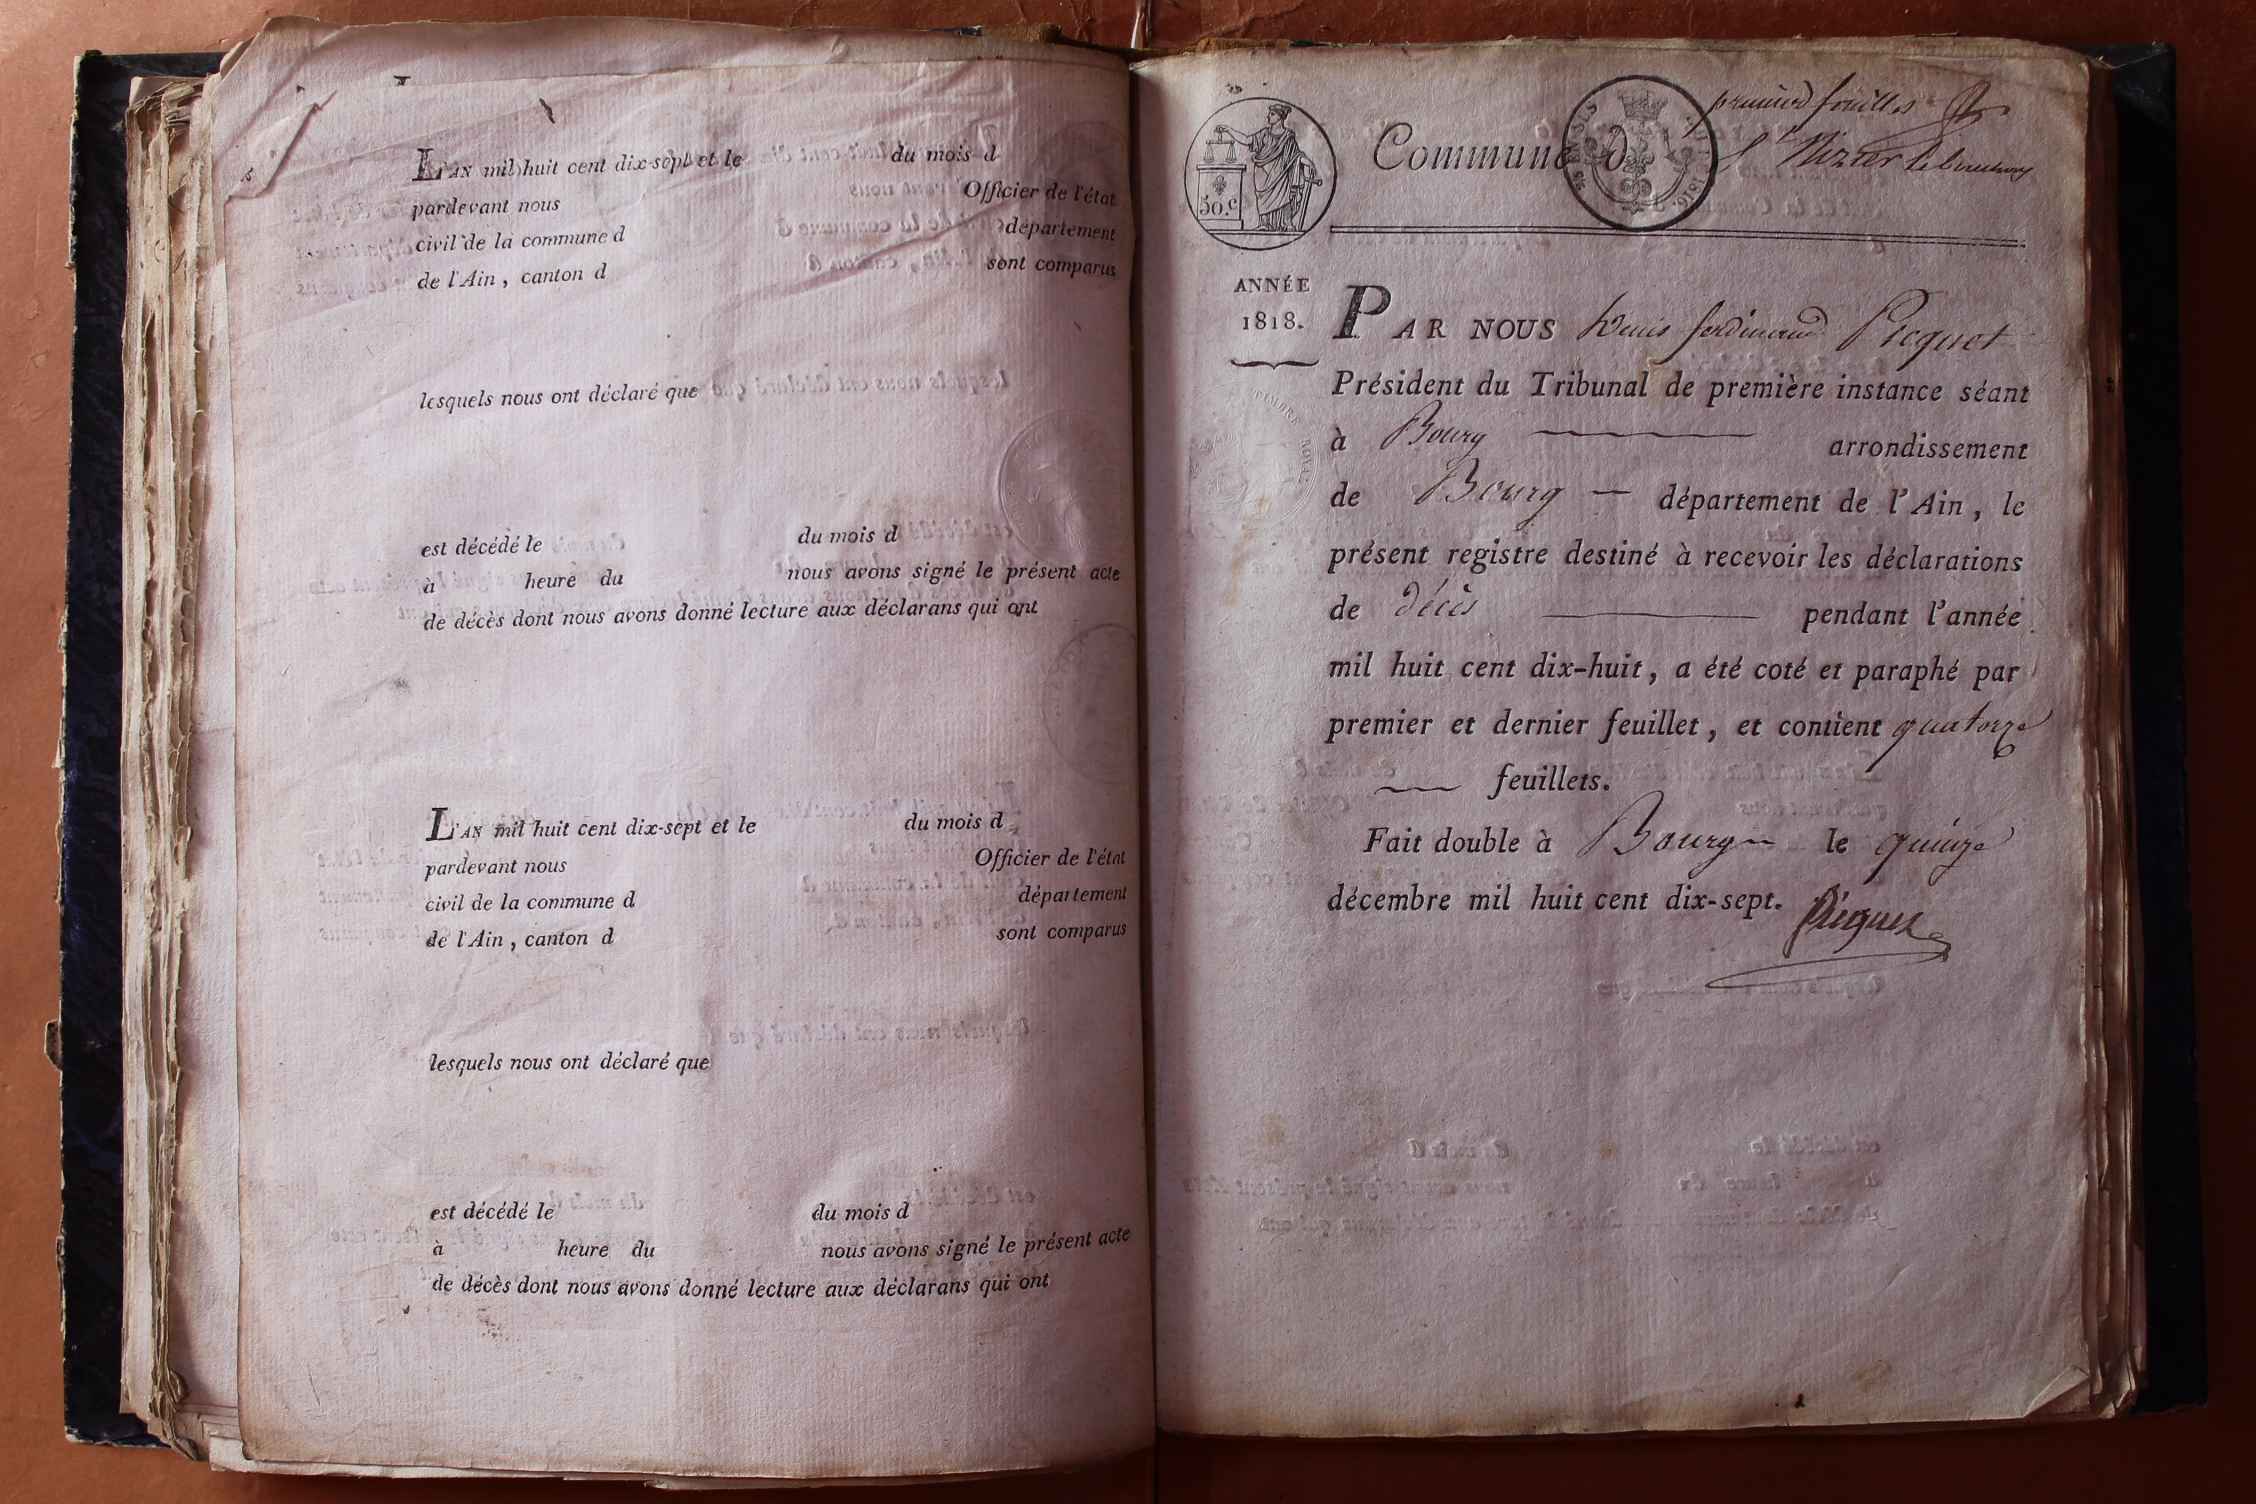 L'AN mil huit cent dix-sept et le du mois d
pardevant nous Officier de l'état
civil de la commune d département
de l'Ain, canton d sont comparus
lesquels nous ont déclaré que
est décédé le du mois d
à heure du nous avons signé le présent acte
de décès dont nous avons donné lecture aux déclarans qui ont
L'AN mil huit cent dix-sept et le du mois d
pardevant nous Officier de l'état
civil de la commune d département
de l'Ain, canton d sont comparus
lesquels nous ont déclaré que
est décédé le du mois d
à heure du nous avons signé le présent acte
de décès dont nous avons donné lecture aux déclarans qui ont
premier feuillet
Commune d St Nizier le bouchoux
50.c
1816.
ANNÉE
1818.
TIMBRE ROYAL
PAR NOUS Denis ferdinand Picquet
Président du Tribunal de première instance séant
à Bourg arrondissement
de Bourg département de l'Ain, le
présent registre destiné à recevoir les déclarations
de décès pendant l'année
mil huit cent dix-huit, a été coté et paraphé par
premier et dernier feuillet, et contient quatorze
feuillets.
Fait double à Bourg le quinze
décembre mil huit cent dix-sept.
Picquet